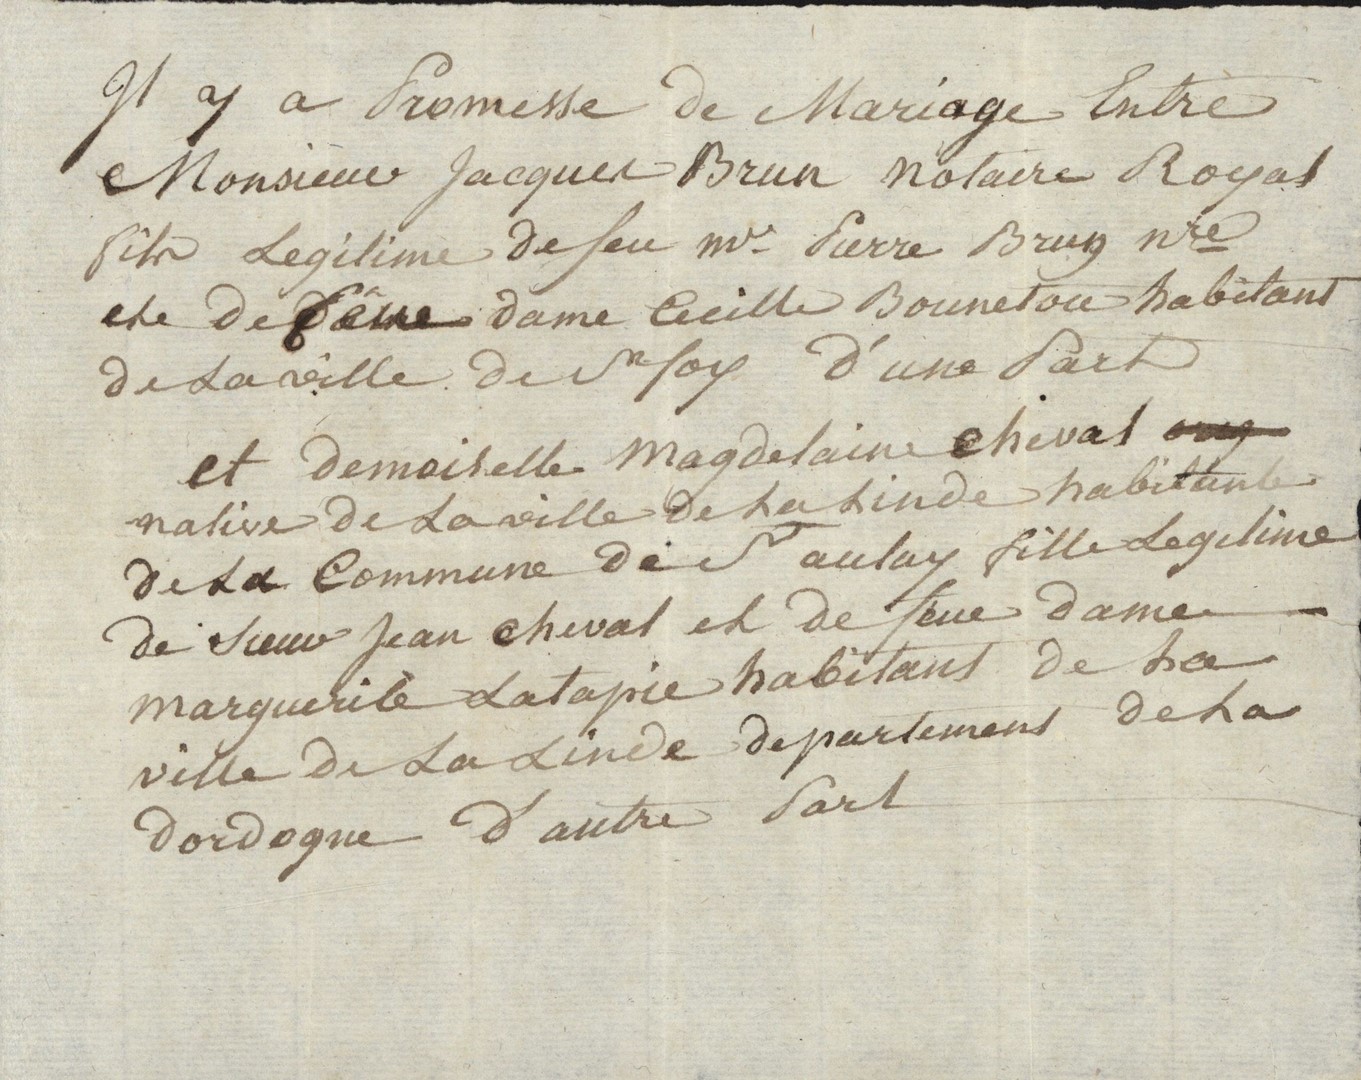 Il y a Promesse de Mariage Entre
Monsieur Jacques Brun notaire Royal
fils Legitime de feu mr. Pierre Brun nre
et de dame Cecille Bounetou habitant
de La ville de Ste foy d'une Part
et demoiselle Magdelaine Cheval
native de La ville de La Linde habitante
de La Commune de St aulay fille Legitime
de sieur Jean Cheval et de feue dame
marguerite Latapie habitant de La
ville de La Linde departement de La
dordogne d'autre Part